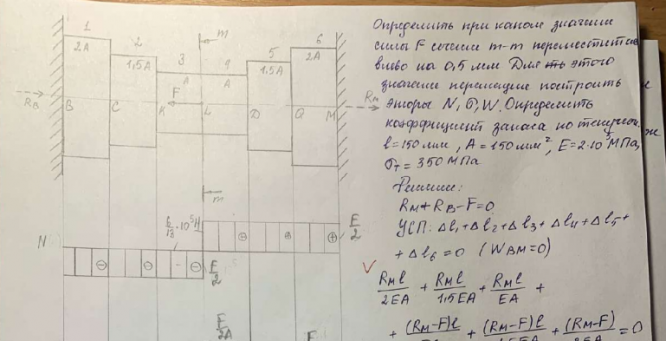 1
2A
2
1,5A
3
A
4
A
5
1,5A
6
2A
m
F
R_B
B
C
K
L
D
Q
M
R_M
m
N
6/13·10⁵Н
F/2
⊖
⊖
-
⊖
F/2
⊕
⊕
⊕
F/2A
F
Определить при каком значении
силы F сечение m-m переместится
влево на 0,5 мм Для этого
значения перемещ построить
эпюры N, σ, W. Определить
коэффициент запаса по текучести.
l=150мм, A=150мм², E=2·10⁵МПа,
σт=350МПа
Решение:
R_M+R_B-F=0
УСП: Δl₁+Δl₂+Δl₃+Δl₄+Δl₅+
+Δl₆=0 (W_BM=0)
R_Ml/2EA + R_Ml/1,5EA + R_Ml/EA +
+ (R_M-F)l + (R_M-F)l + (R_M-F) =0